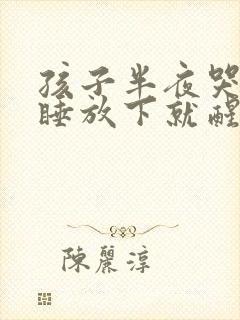 孩子半夜哭
睡放下就醒
陳麗淳